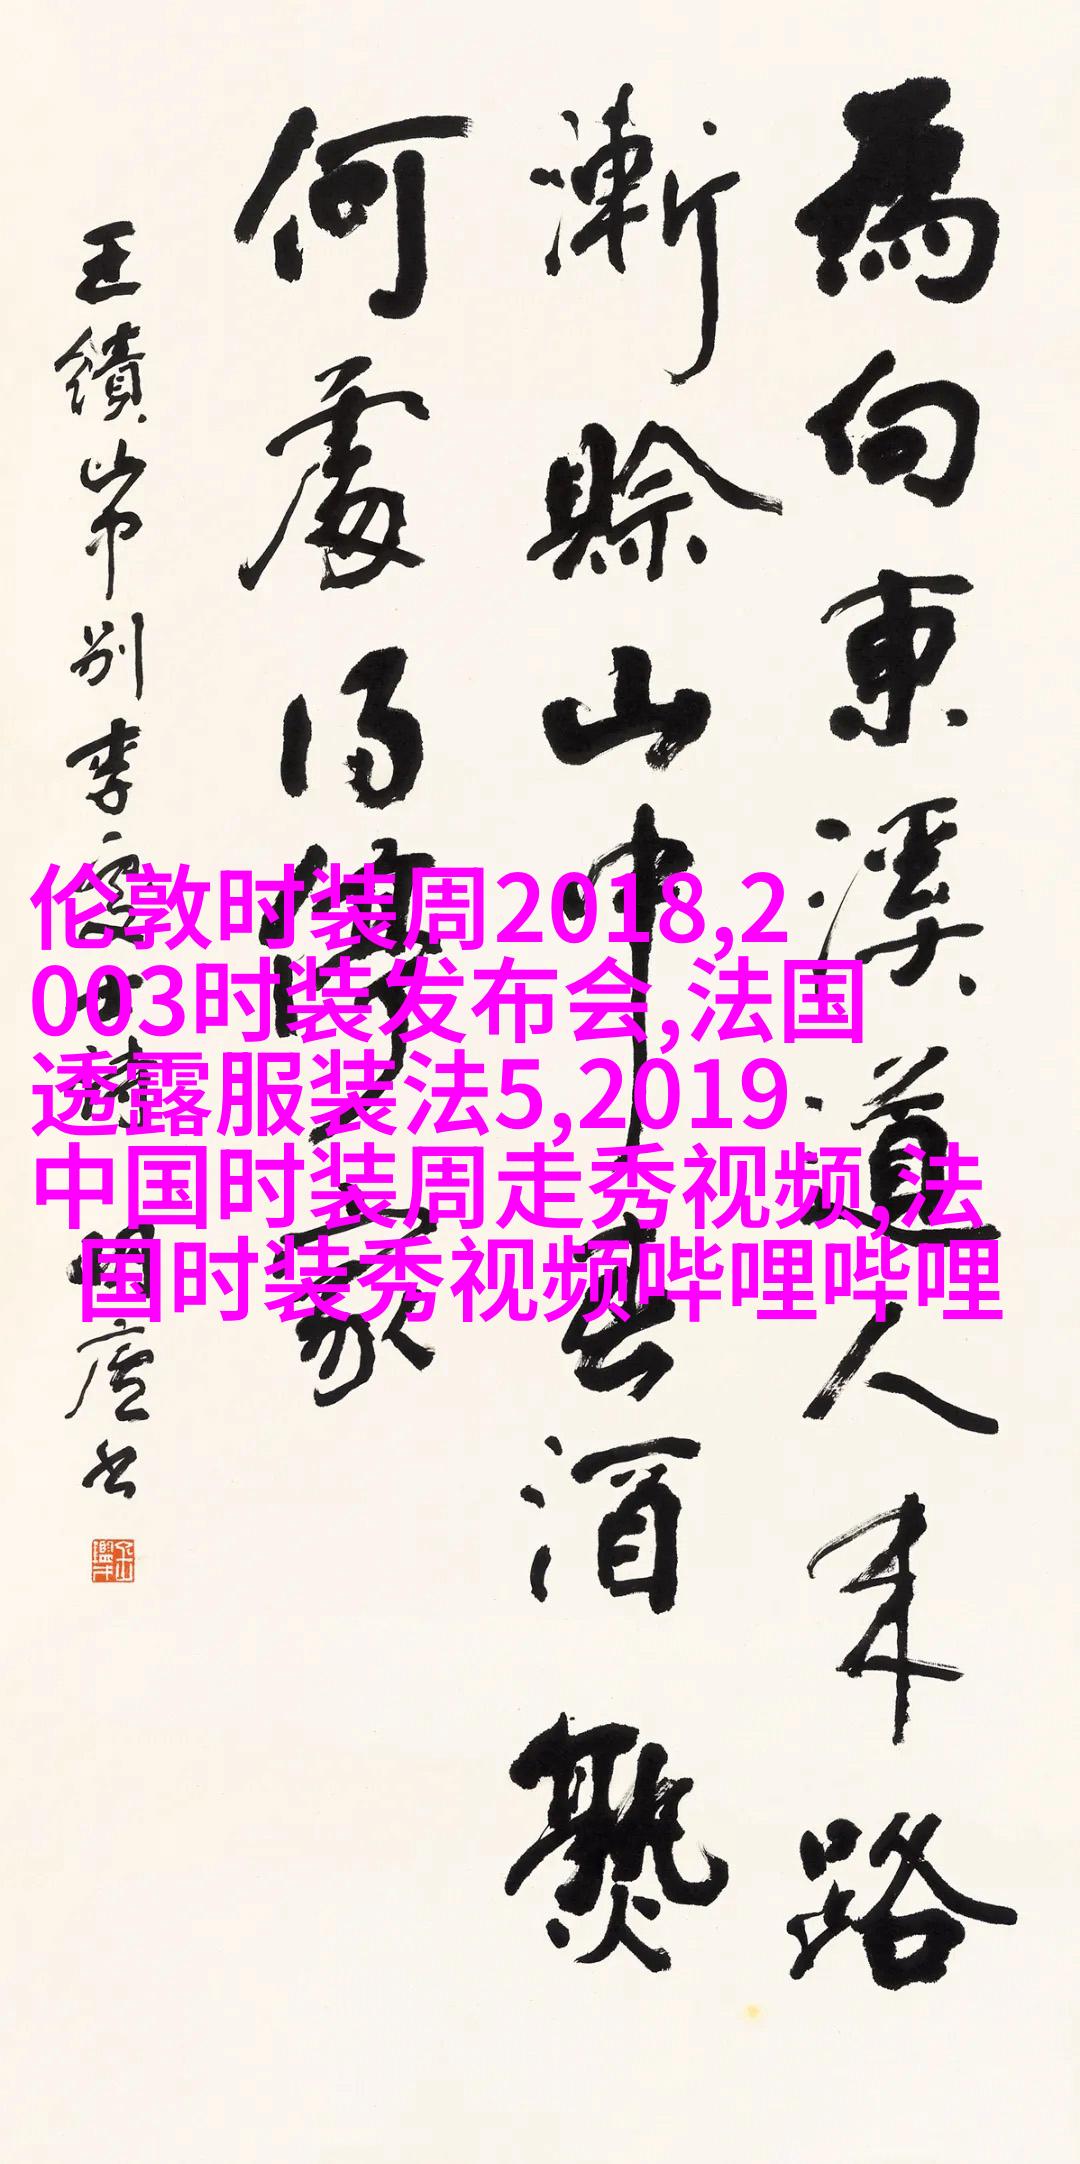 為向東溪道人来路
漸賒山中春酒熟
何處得停家
王績山中別李處士詩廬書
伦敦时装周2018,2
003时装发布会,法国
透露服装法5,2019
中国时装周走秀视频,法
国时装秀视频哔哩哔哩